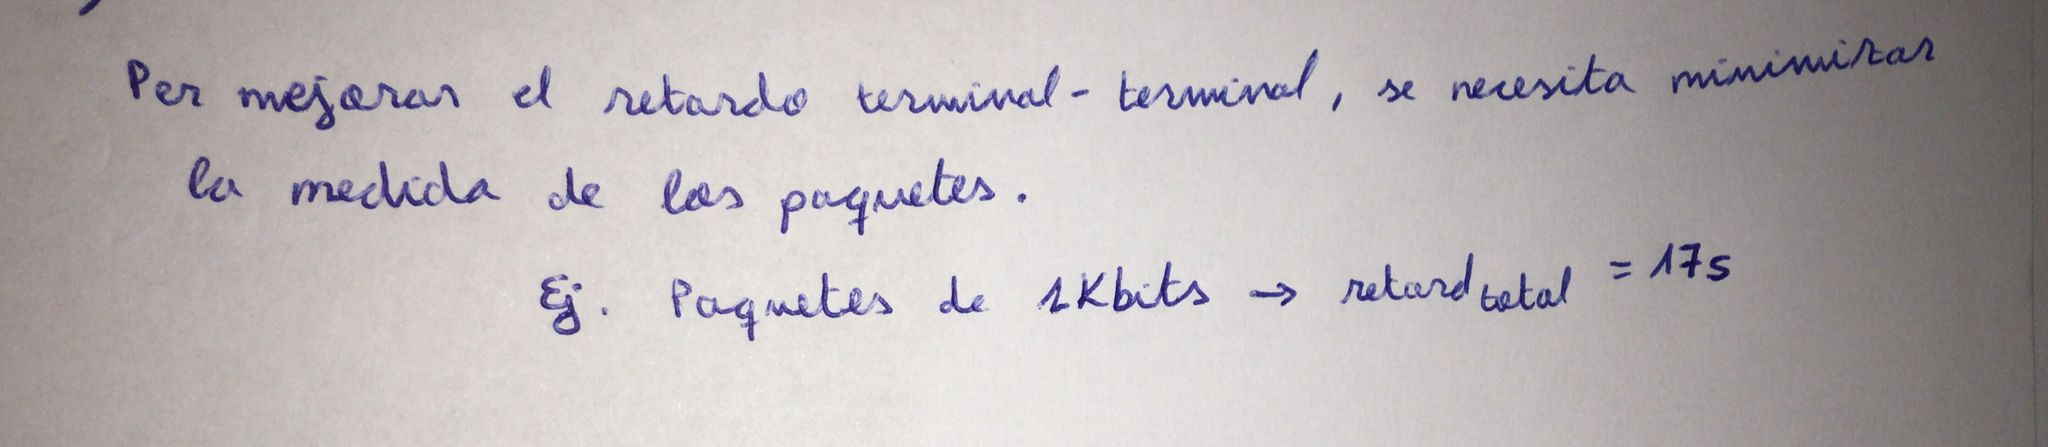 Per mejorar el retardo terminal-terminal, se necesita minimizar
la medida de los paquetes.
Ej. Paquetes de 1Kbits → retard total = 17s